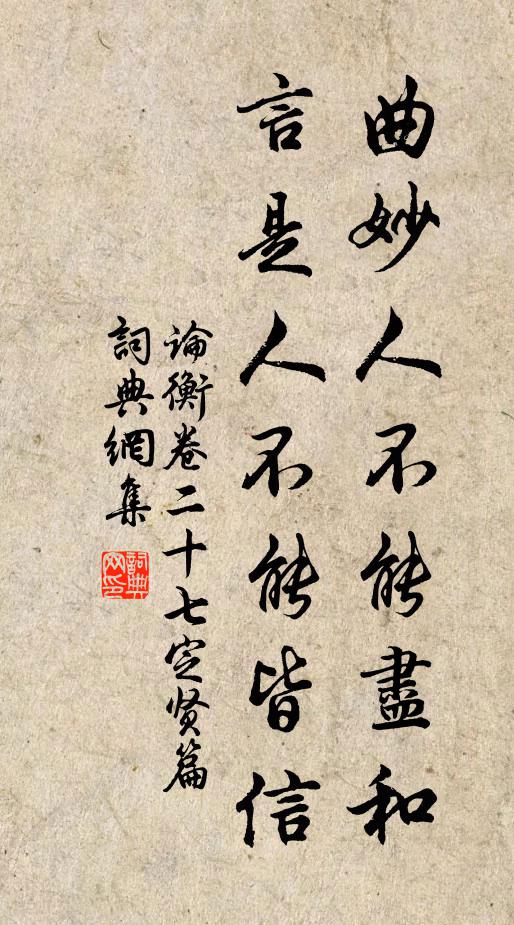 曲妙人不能盡和
言是人不能皆信
论衡卷二十七定贤篇
詞典網集
詞典网印